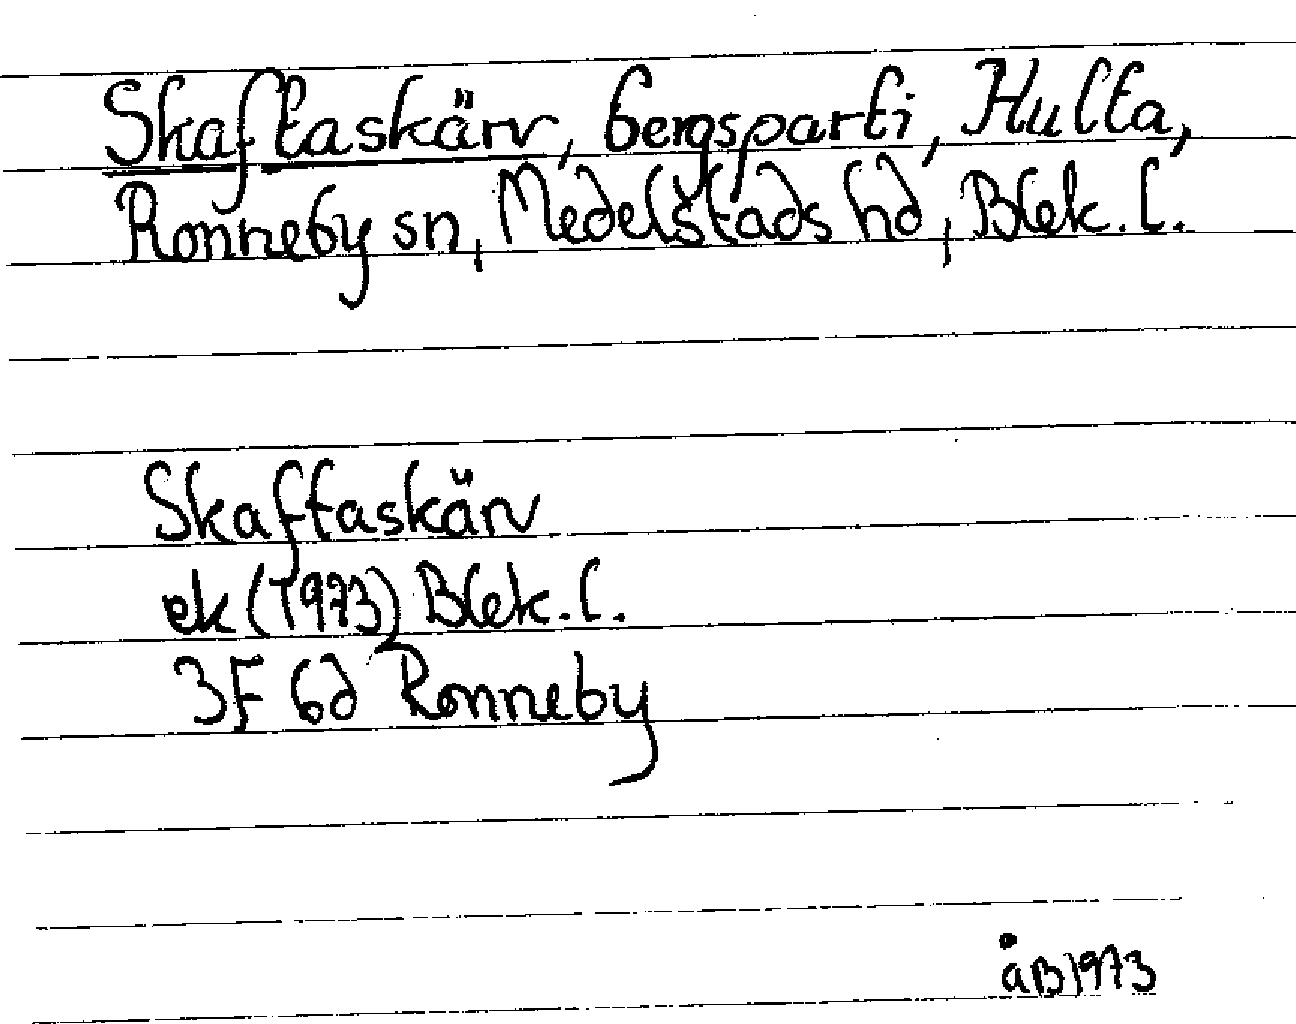 Skaftaskärv, bergsparti, Hulta,
Ronneby sn, Medelstads hd, Blek. l.
Skaftaskärv
ek (1973) Blek. l.
3F 6d Ronneby
åB 1973